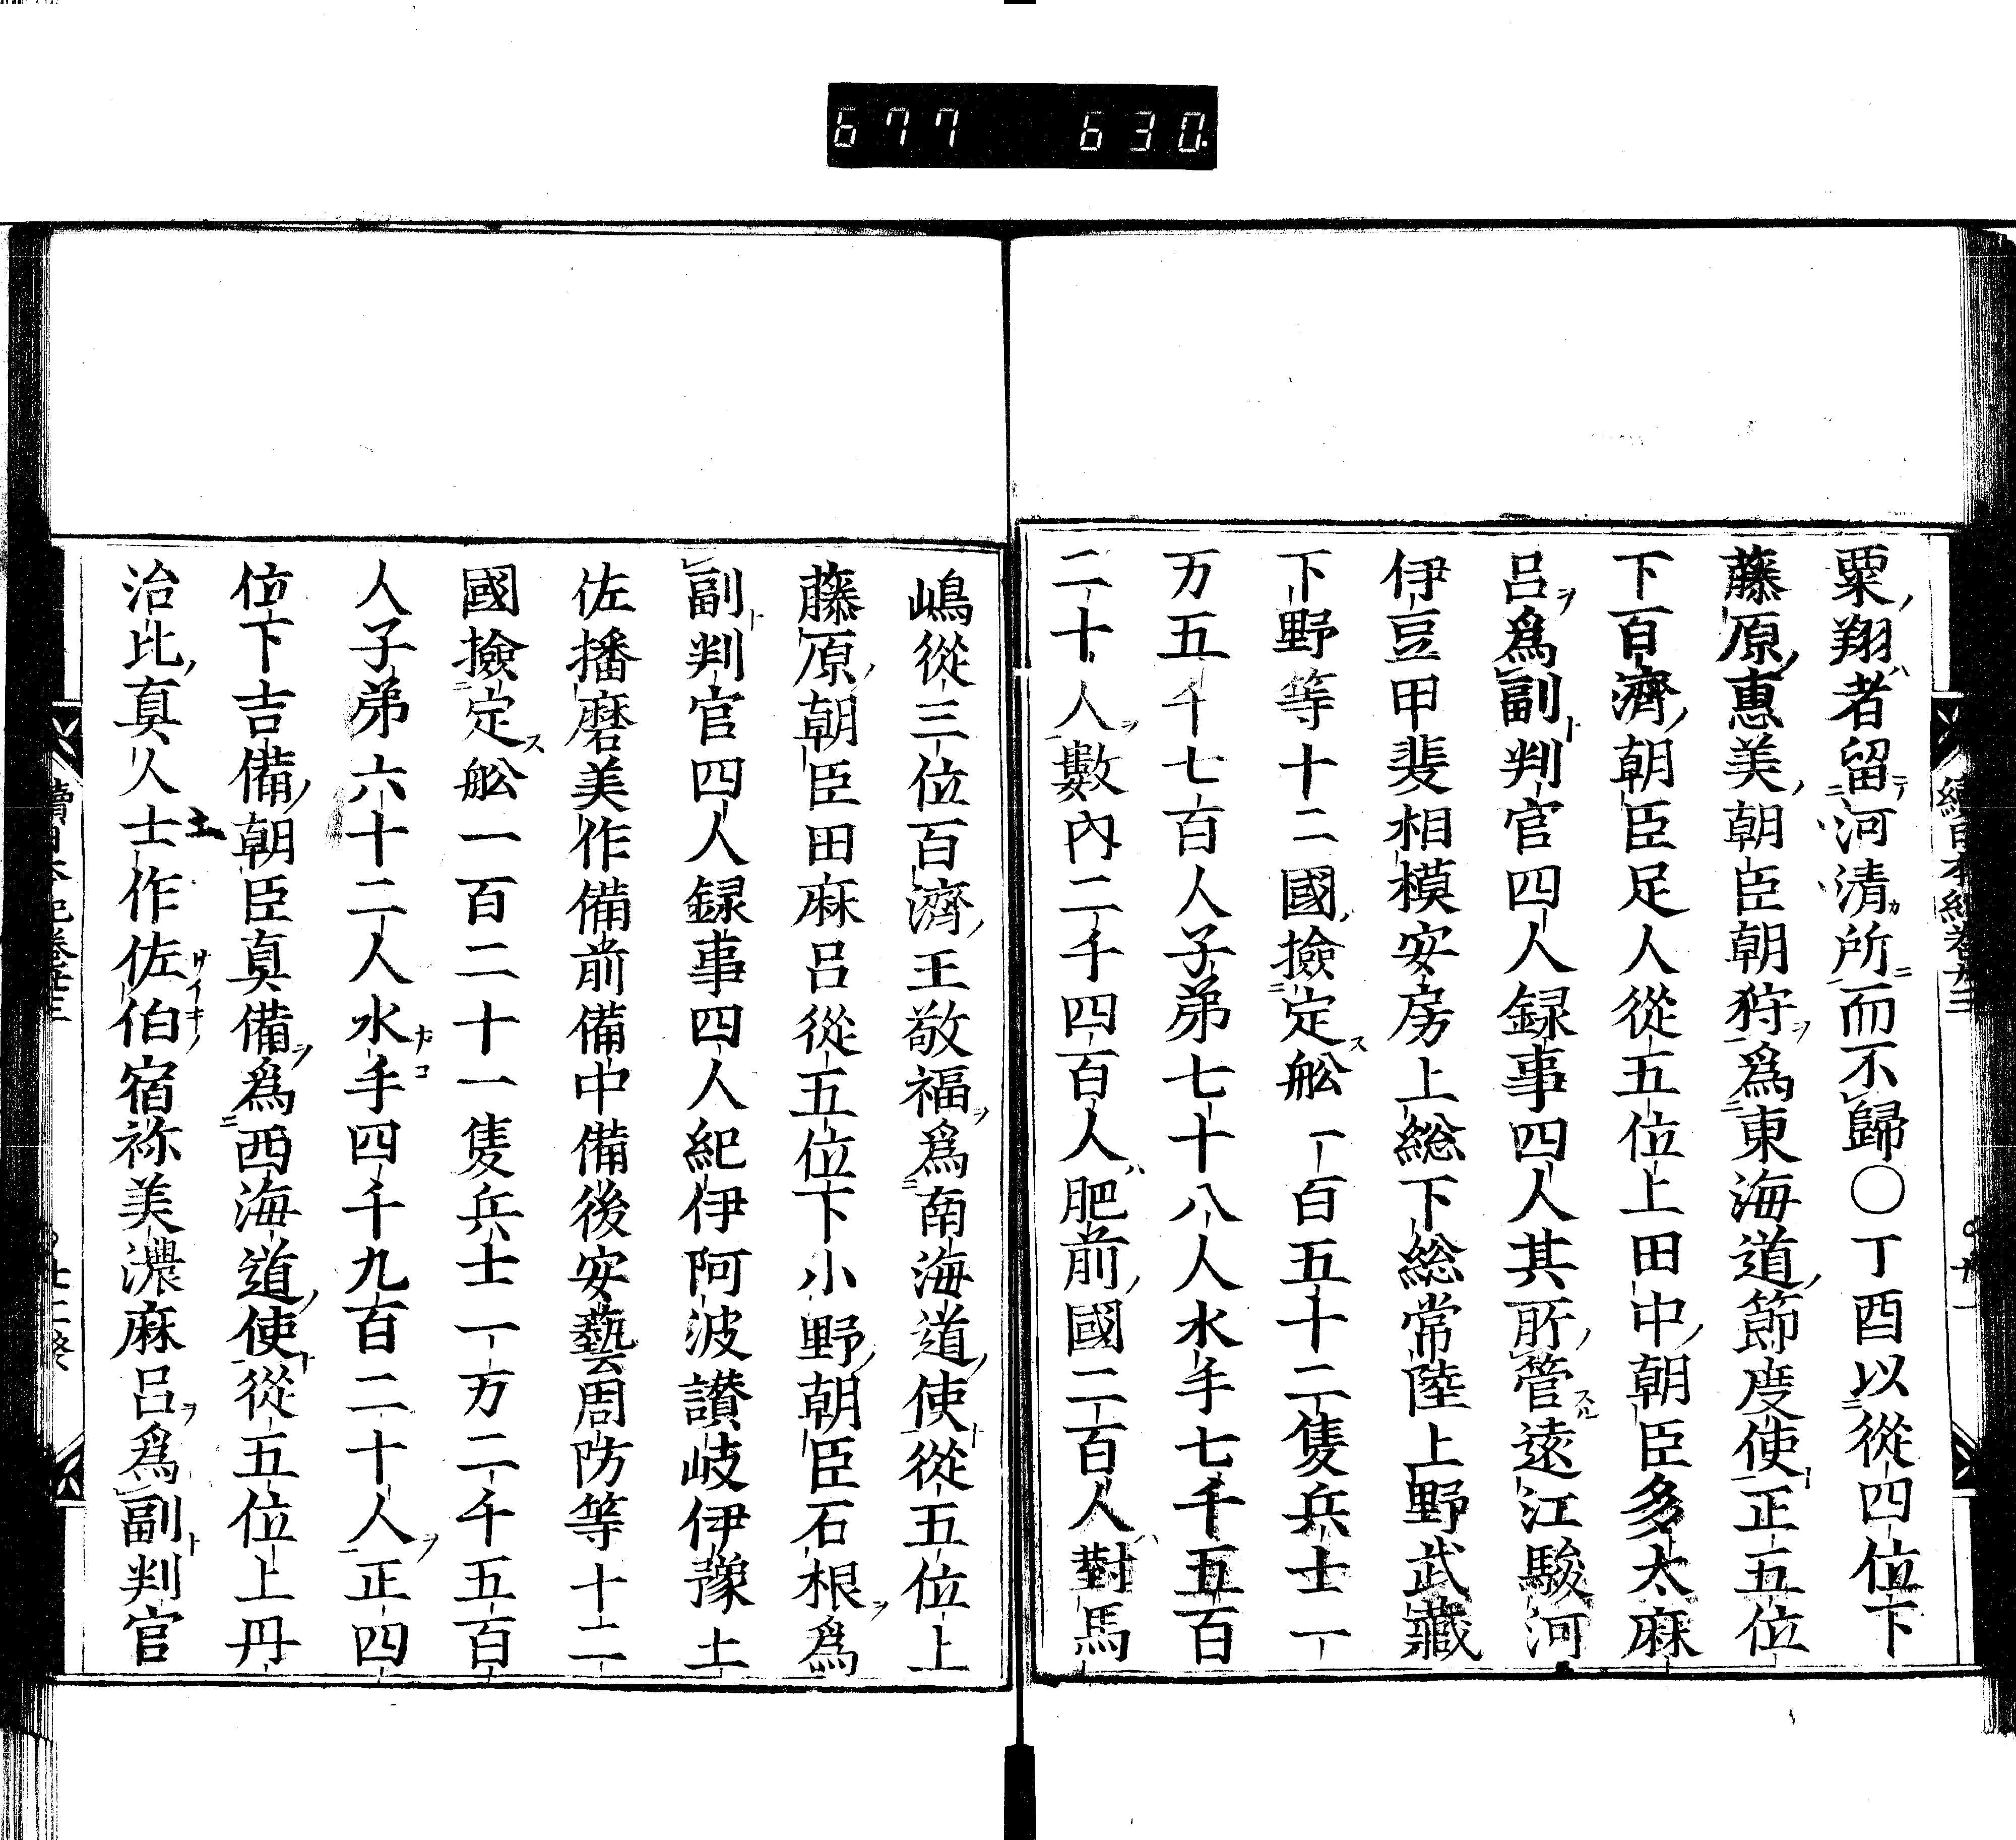 677 630
粟翔者留河清所而不歸〇丁酉以從四位下
藤原惠美朝臣朝狩爲東海道節度使正五位
下百濟朝臣足人從五位上田中朝臣多太麻
呂爲副判官四人録事四人其所管遠江駿河
伊豆甲斐相模安房上総下総常陸上野武藏
下野等十二國撿定舩一百五十二隻兵士一
万五千七百人子弟七十八人水手七千五百
二十人數内二千四百人肥前國二百人對馬
嶋從三位百濟王敬福爲南海道使從五位上
藤原朝臣田麻呂從五位下小野朝臣石根爲
副判官四人録事四人紀伊阿波讃岐伊豫土
佐播磨美作備前備中備後安藝周防等十二
國撿定舩一百二十一隻兵士一万二千五百
人子弟六十二人水手四千九百二十人正四
位下吉備朝臣真備爲西海道使從五位上丹
治比真人士作佐伯宿祢美濃麻呂爲副判官